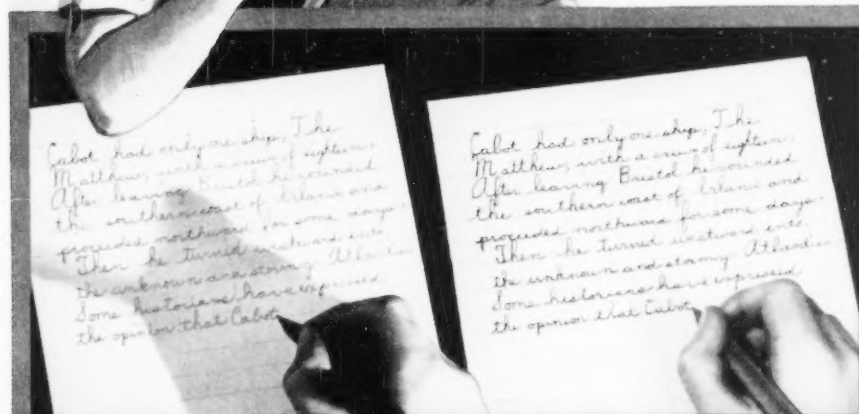 Cabot had only one ship, The
Matthew, with a crew of eighteen.
After leaving Bristol he rounded
the southern coast of Ireland and
proceeded northward for some days.
Then he turned westward into
the unknown and stormy Atlantic.
Some historians have expressed
the opinion that Cabot
Cabot had only one ship, The
Matthew, with a crew of eighteen.
After leaving Bristol he rounded
the southern coast of Ireland and
proceeded northward for some days.
Then he turned westward into
the unknown and stormy Atlantic
Some historians have expressed
the opinion that Cabot